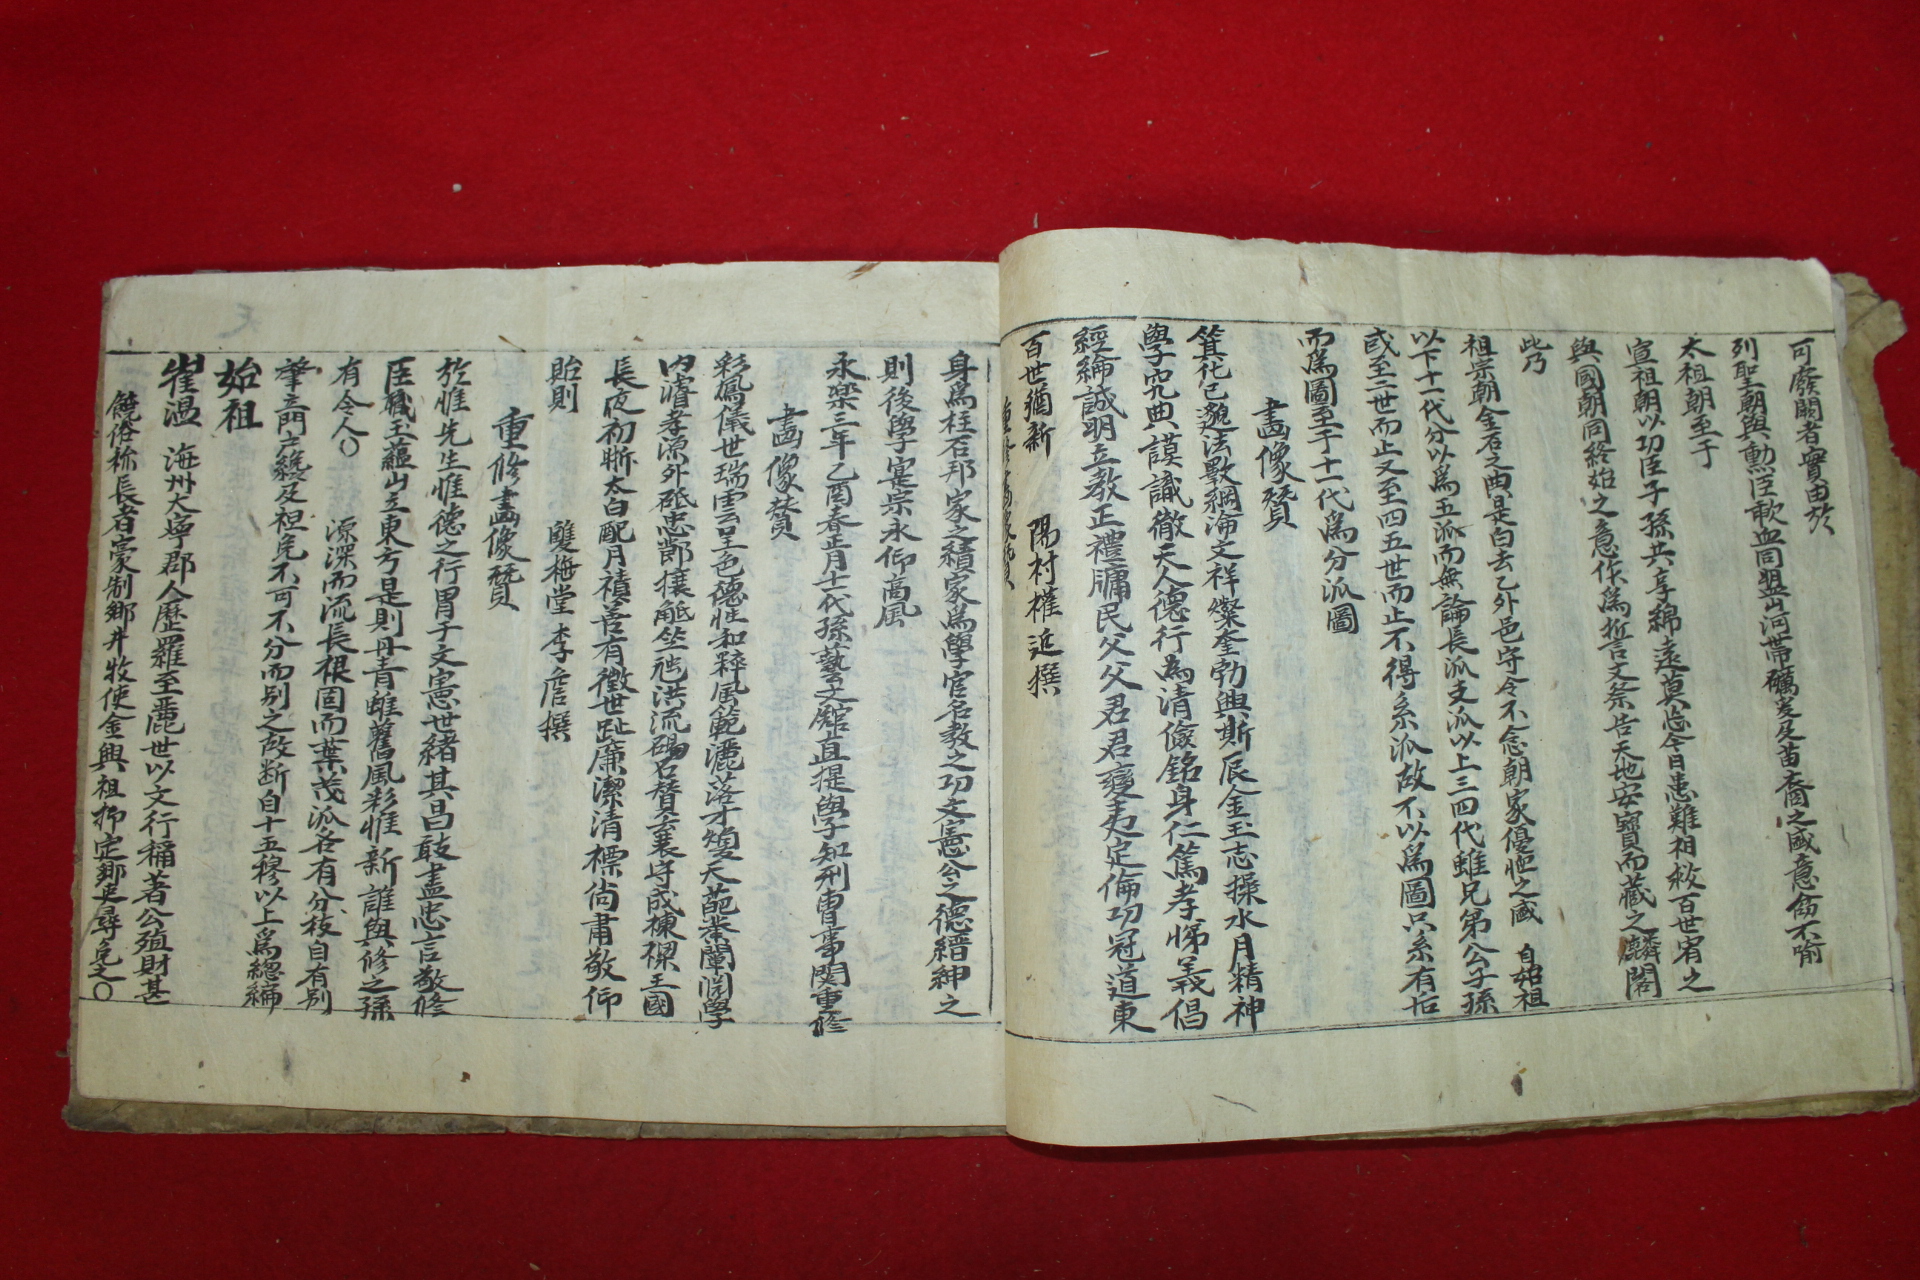 可廢闕者實由於
列聖朝與勳臣歃血同盟山河帶礪爰及苗裔之盛意苟不喻
太祖朝至于
宣祖朝以功臣子孫共享綿遠莫忘今日患難相救百世宥之
與國朝同終始之意作爲誓文祭告天地安寶而藏之麟閣
此乃
祖宗朝金石之典是白去乙外邑守令不念朝家優恤之盛 自始祖
以下十一代分以爲五派而無論長派支派以上三四代雖兄弟公子孫
或至二世而止又至四五世而止不得系派故不以爲圖只系有后
而爲圖至于十一代爲分派圖
畵像贊
箕化已邈法斁綱淪文祥燦奎勃興斯辰金玉志操水月精神
學究典謨識徹天人德行爲清儉銘身仁篤孝悌義倡
經綸誠明立教正禮牗民父父君君變夷定倫功冠道東
百世猶新 陽村權近撰
身爲柱石邦家之績家爲學官名教之功文憲公之德縉紳之
則後學寔宗永仰高風
永樂三年乙酉春正月十一代孫藝文館直提學知刑曹事閔重修
畵像贊
彩鳳儀世瑞雲呈色德性和粹風範灑落才雙天葩業闡閎學
內濬孝源外砥忠鄧攘觝坐祂洪流碣石替玄襄守成棟樑王國
長夜初晰太白配月積善有徵世趾廉潔清標尙肅敬仰
貽則 雙梅堂李詹撰
重修畵像贊
於惟先生惟德之行胃子文憲世緖其昌鼓盡忠言敬修
臣職玉蘊山立東方是則丹青雖舊風彩惟新誰與修之孫
有令人○ 源深而流長根固而葉茂派各有分枝自有別
肇立門戶襲及袒免不可不分而別之故斷自十五穆以上爲總編
始祖
崔溫 海州大寧郡人歷羅至麗世以文行稱著公殖財甚
饒俗称長者豪制鄉井牧使金與祖抑定鄉吏尋免之○